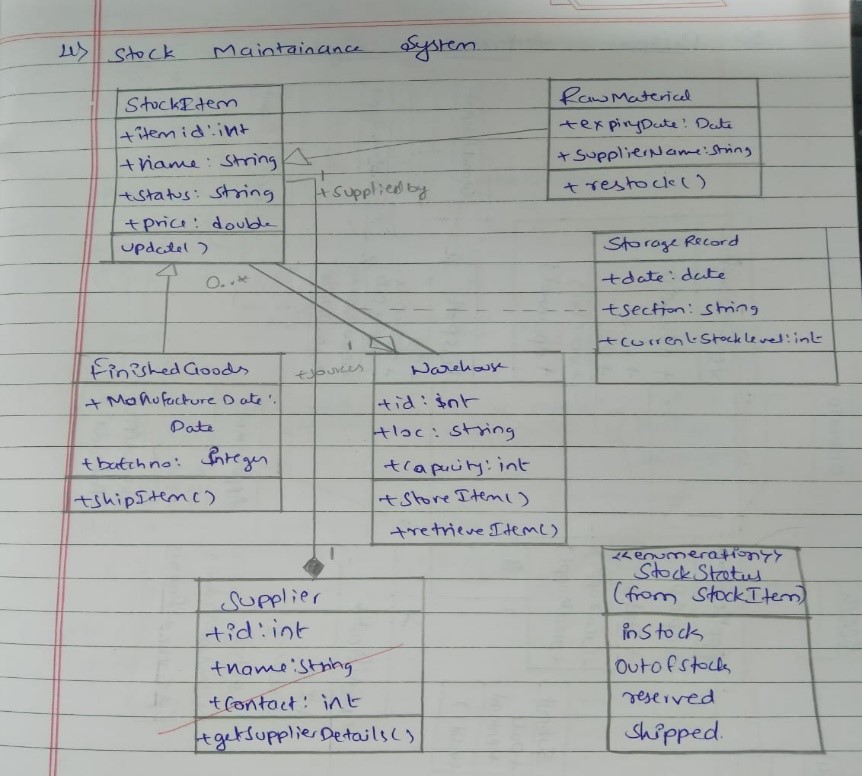 4) Stock Maintainance System
StockItem
+itemid: int
+name: String
+status: string
+price: double
update()
RawMaterial
+expiryDate: Date
+SupplierName: String
+restock()
1
+Suppliedby
StorageRecord
+date: date
+section: string
+currentStocklevel: int
0..*
1
+sources
FinishedGoods
+Manufacture Date:
Date
+batchno: Integer
+shipItem()
Warehouse
+id: int
+loc: string
+capacity: int
+StoreItem()
+retrieveItem()
1
Supplier
+id: int
+name: String
+Contact: int
+getSupplierDetails()
<<enumeration>>
StockStatus
(from StockItem)
instock
outofstock
reserved
Shipped.